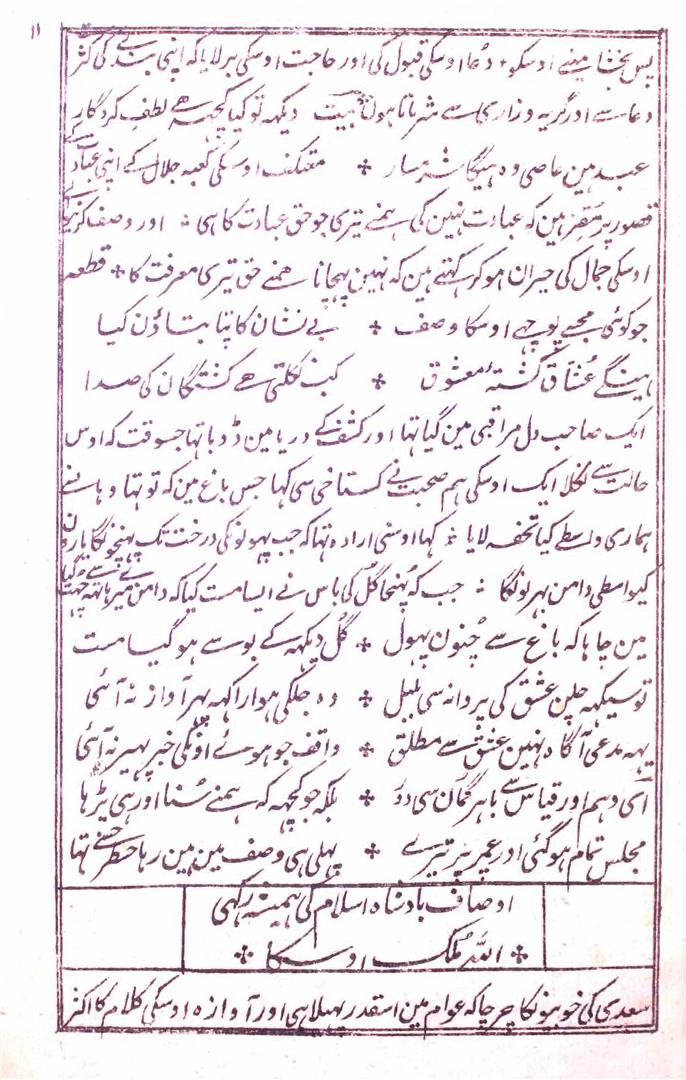 ۱۱
پس بخشا مینے اوسکو ۔ دعا اوسکی قبول کی اور حاجت اوسکی برلایا کہ اپنی بندے کی کثرت
دعا سے اور گریہ و زاری سے شرماتا ہوں بیت دیکھہ تو کیا کچھہ ہے لطف کردگار
عبد مین عاصی وہ ہیگا شرمسار ÷ معتکف اوسکی کعبہ جلال کے اپنی عبادت کے
قصور پر مقر ہین کہ عبادت نہین کی ہمنے تیری جو حق عبادت کا ہی ÷ اور وصف کرنیوالے
اوسکی جمال کی حیران ہو کر کہتے ہین کہ نہین پہچانا ہمنے حق تیری معرفت کا ÷ قطعہ
جو کوئی مجسے پوچہے اوسکا وصف ÷ بے نشان کا پتا بتاؤن کیا
ہینگے عشاق کشتۂ معشوق ÷ کب نکلتی ہے کشتگان کی صدا
ایک صاحب دل مراقبی مین گیا تہا اور کشف کے دریا مین ڈوبا تہا جسوقت کہ اوس
حالت سے نکلا ایک اوسکی ہم صحبت نے گستاخی سی کہا جس باغ مین کہ تو تہا وہانسے
ہماری واسطے کیا تحفہ لایا ÷ کہا اوسنی ارادہ تہا کہ جب پہولونکی درخت تک پہنچونگا یارون
کیواسطی دامن بہر لونگا ÷ جب کہ پہنچا گل کی باس نے ایسا مست کیا کہ دامن میرا ہاتہہ سے چہٹ گیا
مین چاہا کہ باغ سے چنون پہول ÷ گل دیکہہ کے بو سے ہو گیا مست
تو سیکہہ چلن عشق کی پروانہ سی بلبل ÷ وہ جلکی ہوا راکہہ پہر آواز نہ آئی
یہہ مدعی آگاہ نہین عشق سے مطلق ÷ واقف جو ہوئے اونکی خبر پہیر نہ آئی
ای وہم اور قیاس سے باہر گمان سی دور ÷ بلکہ جو کچہہ کہ ہمنے سنا اور ہی پڑہا
مجلس تمام ہو گئی اور عمر پر تیرے ÷ پہلی ہی وصف مین مین رہا جسطرحسے تہا
اوصاف بادشاہ اسلام کی ہمیشہ رکہی
÷ اللہ ملک اوسکا ÷
سعدی کی خوبیونکا چرچا کہ عوام مین اسقدر پہیلا ہی اور آوازہ اوسکی کلام کا اکثر